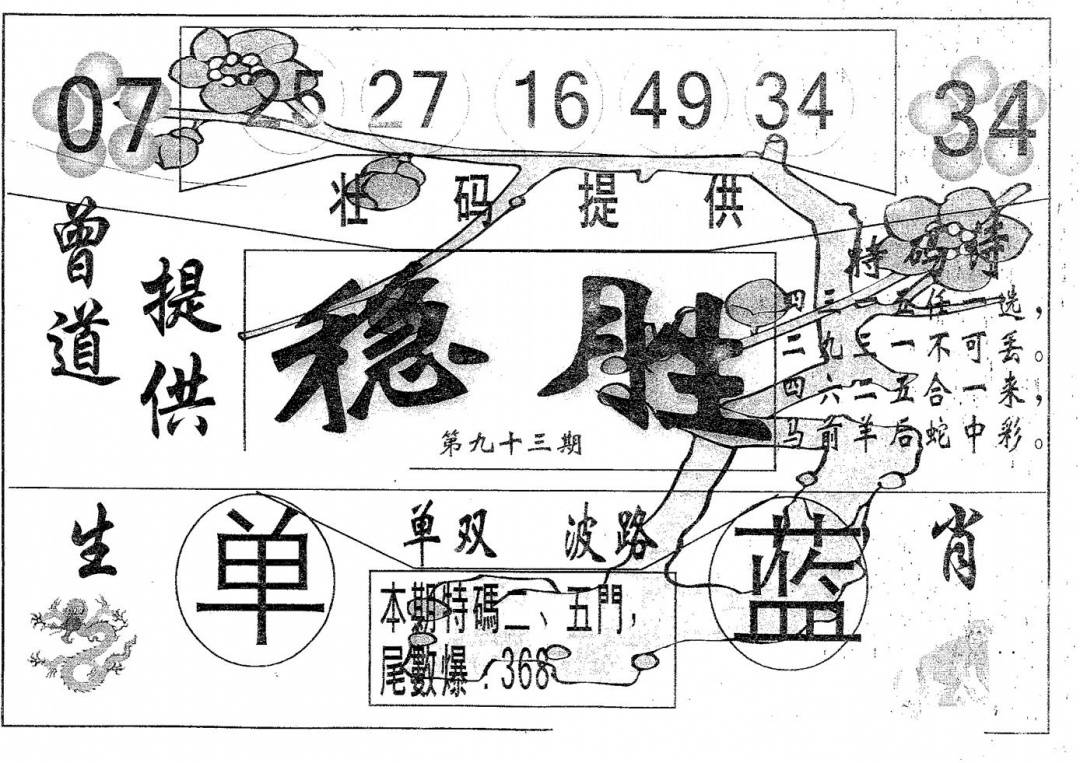 07 25 27 16 49 34 34
壮码提供
曾道
提供
稳胜
第九十三期
特码诗
四三一五任一选，
二九三一不可丢。
四六二五合一来，
马前羊后蛇中彩。
生 单 单双 波路 蓝 肖
本期特碼二、五門，
尾數爆：368